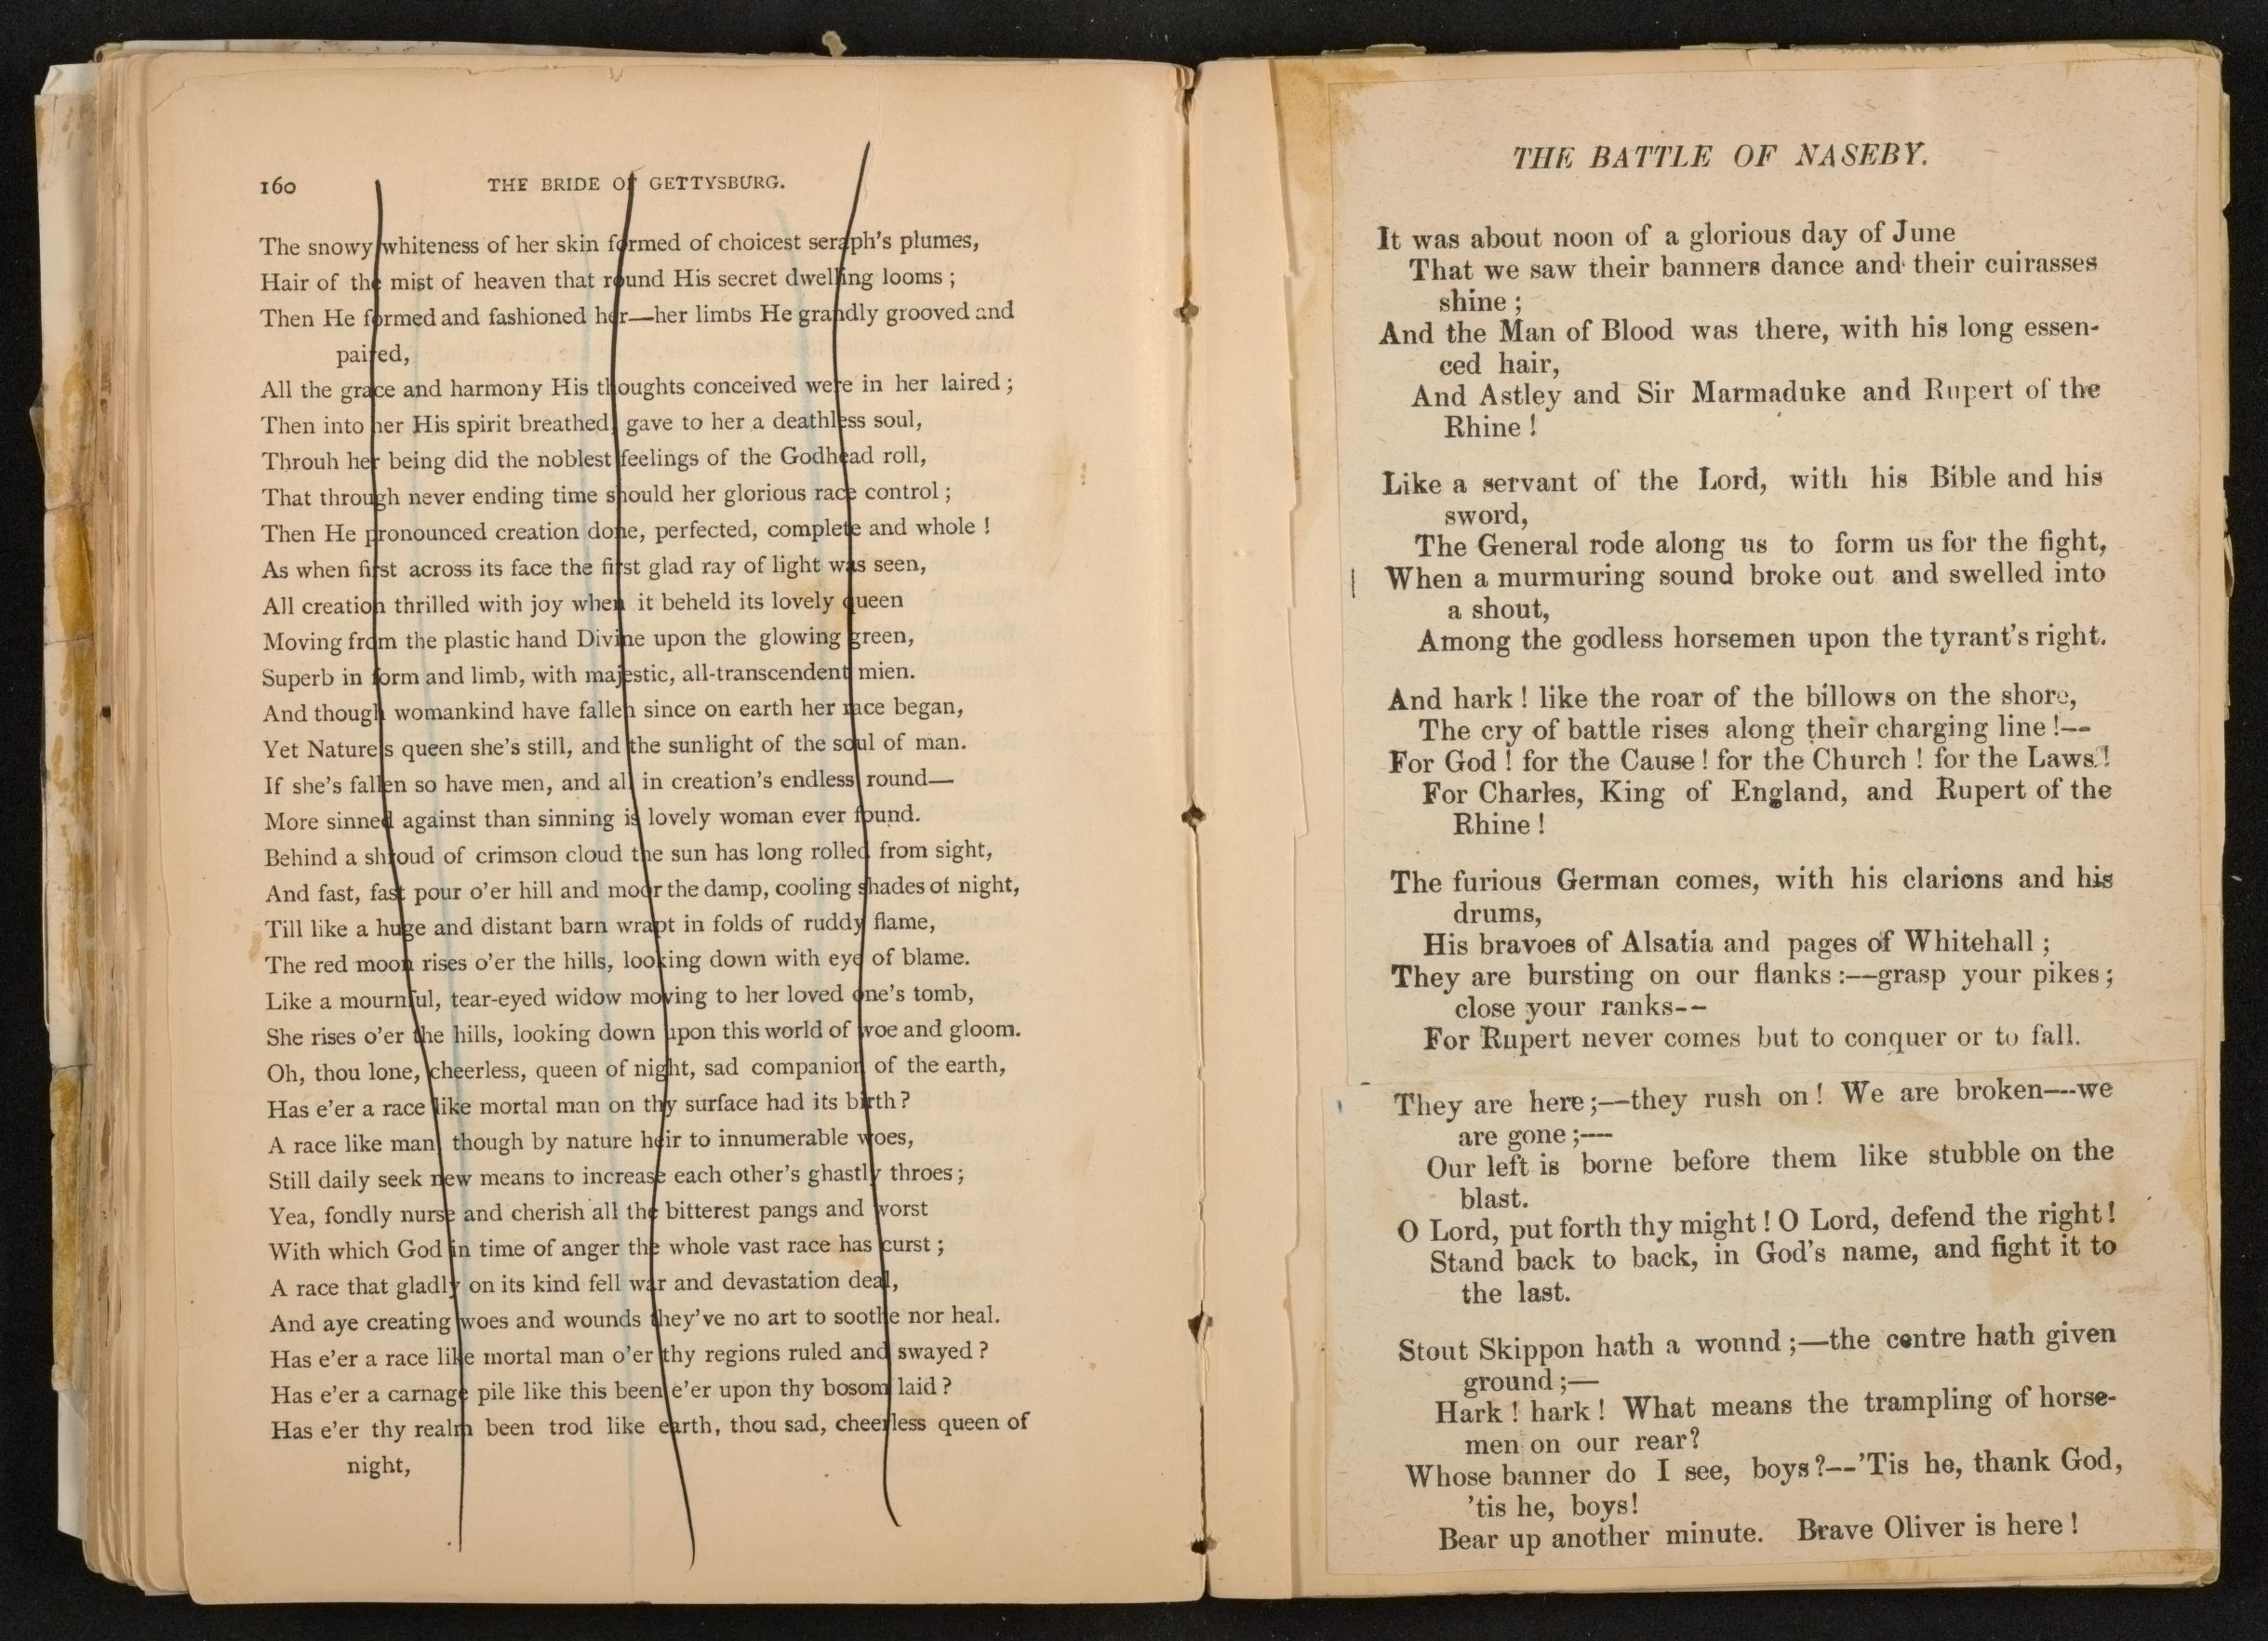 160 THE BRIDE OF GETTYSBURG.
The snowy whiteness of her skin formed of choicest seraph's plumes,
Hair of the mist of heaven that round His secret dwelling looms ;
Then He formed and fashioned her—her limbs He grandly grooved and
paired,
All the grace and harmony His thoughts conceived were in her laired ;
Then into her His spirit breathed, gave to her a deathless soul,
Throuh her being did the noblest feelings of the Godhead roll,
That through never ending time should her glorious race control ;
Then He pronounced creation done, perfected, complete and whole !
As when first across its face the first glad ray of light was seen,
All creation thrilled with joy when it beheld its lovely queen
Moving from the plastic hand Divine upon the glowing green,
Superb in form and limb, with majestic, all-transcendent mien.
And though womankind have fallen since on earth her race began,
Yet Nature's queen she's still, and the sunlight of the soul of man.
If she's fallen so have men, and all in creation's endless round—
More sinned against than sinning is lovely woman ever found.
Behind a shroud of crimson cloud the sun has long rolled from sight,
And fast, fast pour o'er hill and moor the damp, cooling shades of night,
Till like a huge and distant barn wrapt in folds of ruddy flame,
The red moon rises o'er the hills, looking down with eye of blame.
Like a mournful, tear-eyed widow moving to her loved one's tomb,
She rises o'er the hills, looking down upon this world of woe and gloom.
Oh, thou lone, cheerless, queen of night, sad companion of the earth,
Has e'er a race like mortal man on thy surface had its birth ?
A race like man, though by nature heir to innumerable woes,
Still daily seek new means to increase each other's ghastly throes ;
Yea, fondly nurse and cherish all the bitterest pangs and worst
With which God in time of anger the whole vast race has curst ;
A race that gladly on its kind fell war and devastation deal,
And aye creating woes and wounds they've no art to soothe nor heal.
Has e'er a race like mortal man o'er thy regions ruled and swayed ?
Has e'er a carnage pile like this been e'er upon thy bosom laid ?
Has e'er thy realm been trod like earth, thou sad, cheerless queen of
night,
THE BATTLE OF NASEBY.
It was about noon of a glorious day of June
That we saw their banners dance and their cuirasses
shine ;
And the Man of Blood was there, with his long essen-
ced hair,
And Astley and Sir Marmaduke and Rupert of the
Rhine !
Like a servant of the Lord, with his Bible and his
sword,
The General rode along us to form us for the fight,
When a murmuring sound broke out and swelled into
a shout,
Among the godless horsemen upon the tyrant's right.
And hark ! like the roar of the billows on the shore,
The cry of battle rises along their charging line !--
For God ! for the Cause ! for the Church ! for the Laws !
For Charles, King of England, and Rupert of the
Rhine !
The furious German comes, with his clarions and his
drums,
His bravoes of Alsatia and pages of Whitehall ;
They are bursting on our flanks :—grasp your pikes ;
close your ranks--
For Rupert never comes but to conquer or to fall.
They are here ;—they rush on ! We are broken—-we
are gone ;—-
Our left is borne before them like stubble on the
blast.
O Lord, put forth thy might ! O Lord, defend the right !
Stand back to back, in God's name, and fight it to
the last.
Stout Skippon hath a wonnd ;—the centre hath given
ground ;—
Hark ! hark ! What means the trampling of horse-
men on our rear?
Whose banner do I see, boys ?--'Tis he, thank God,
'tis he, boys!
Bear up another minute. Brave Oliver is here !